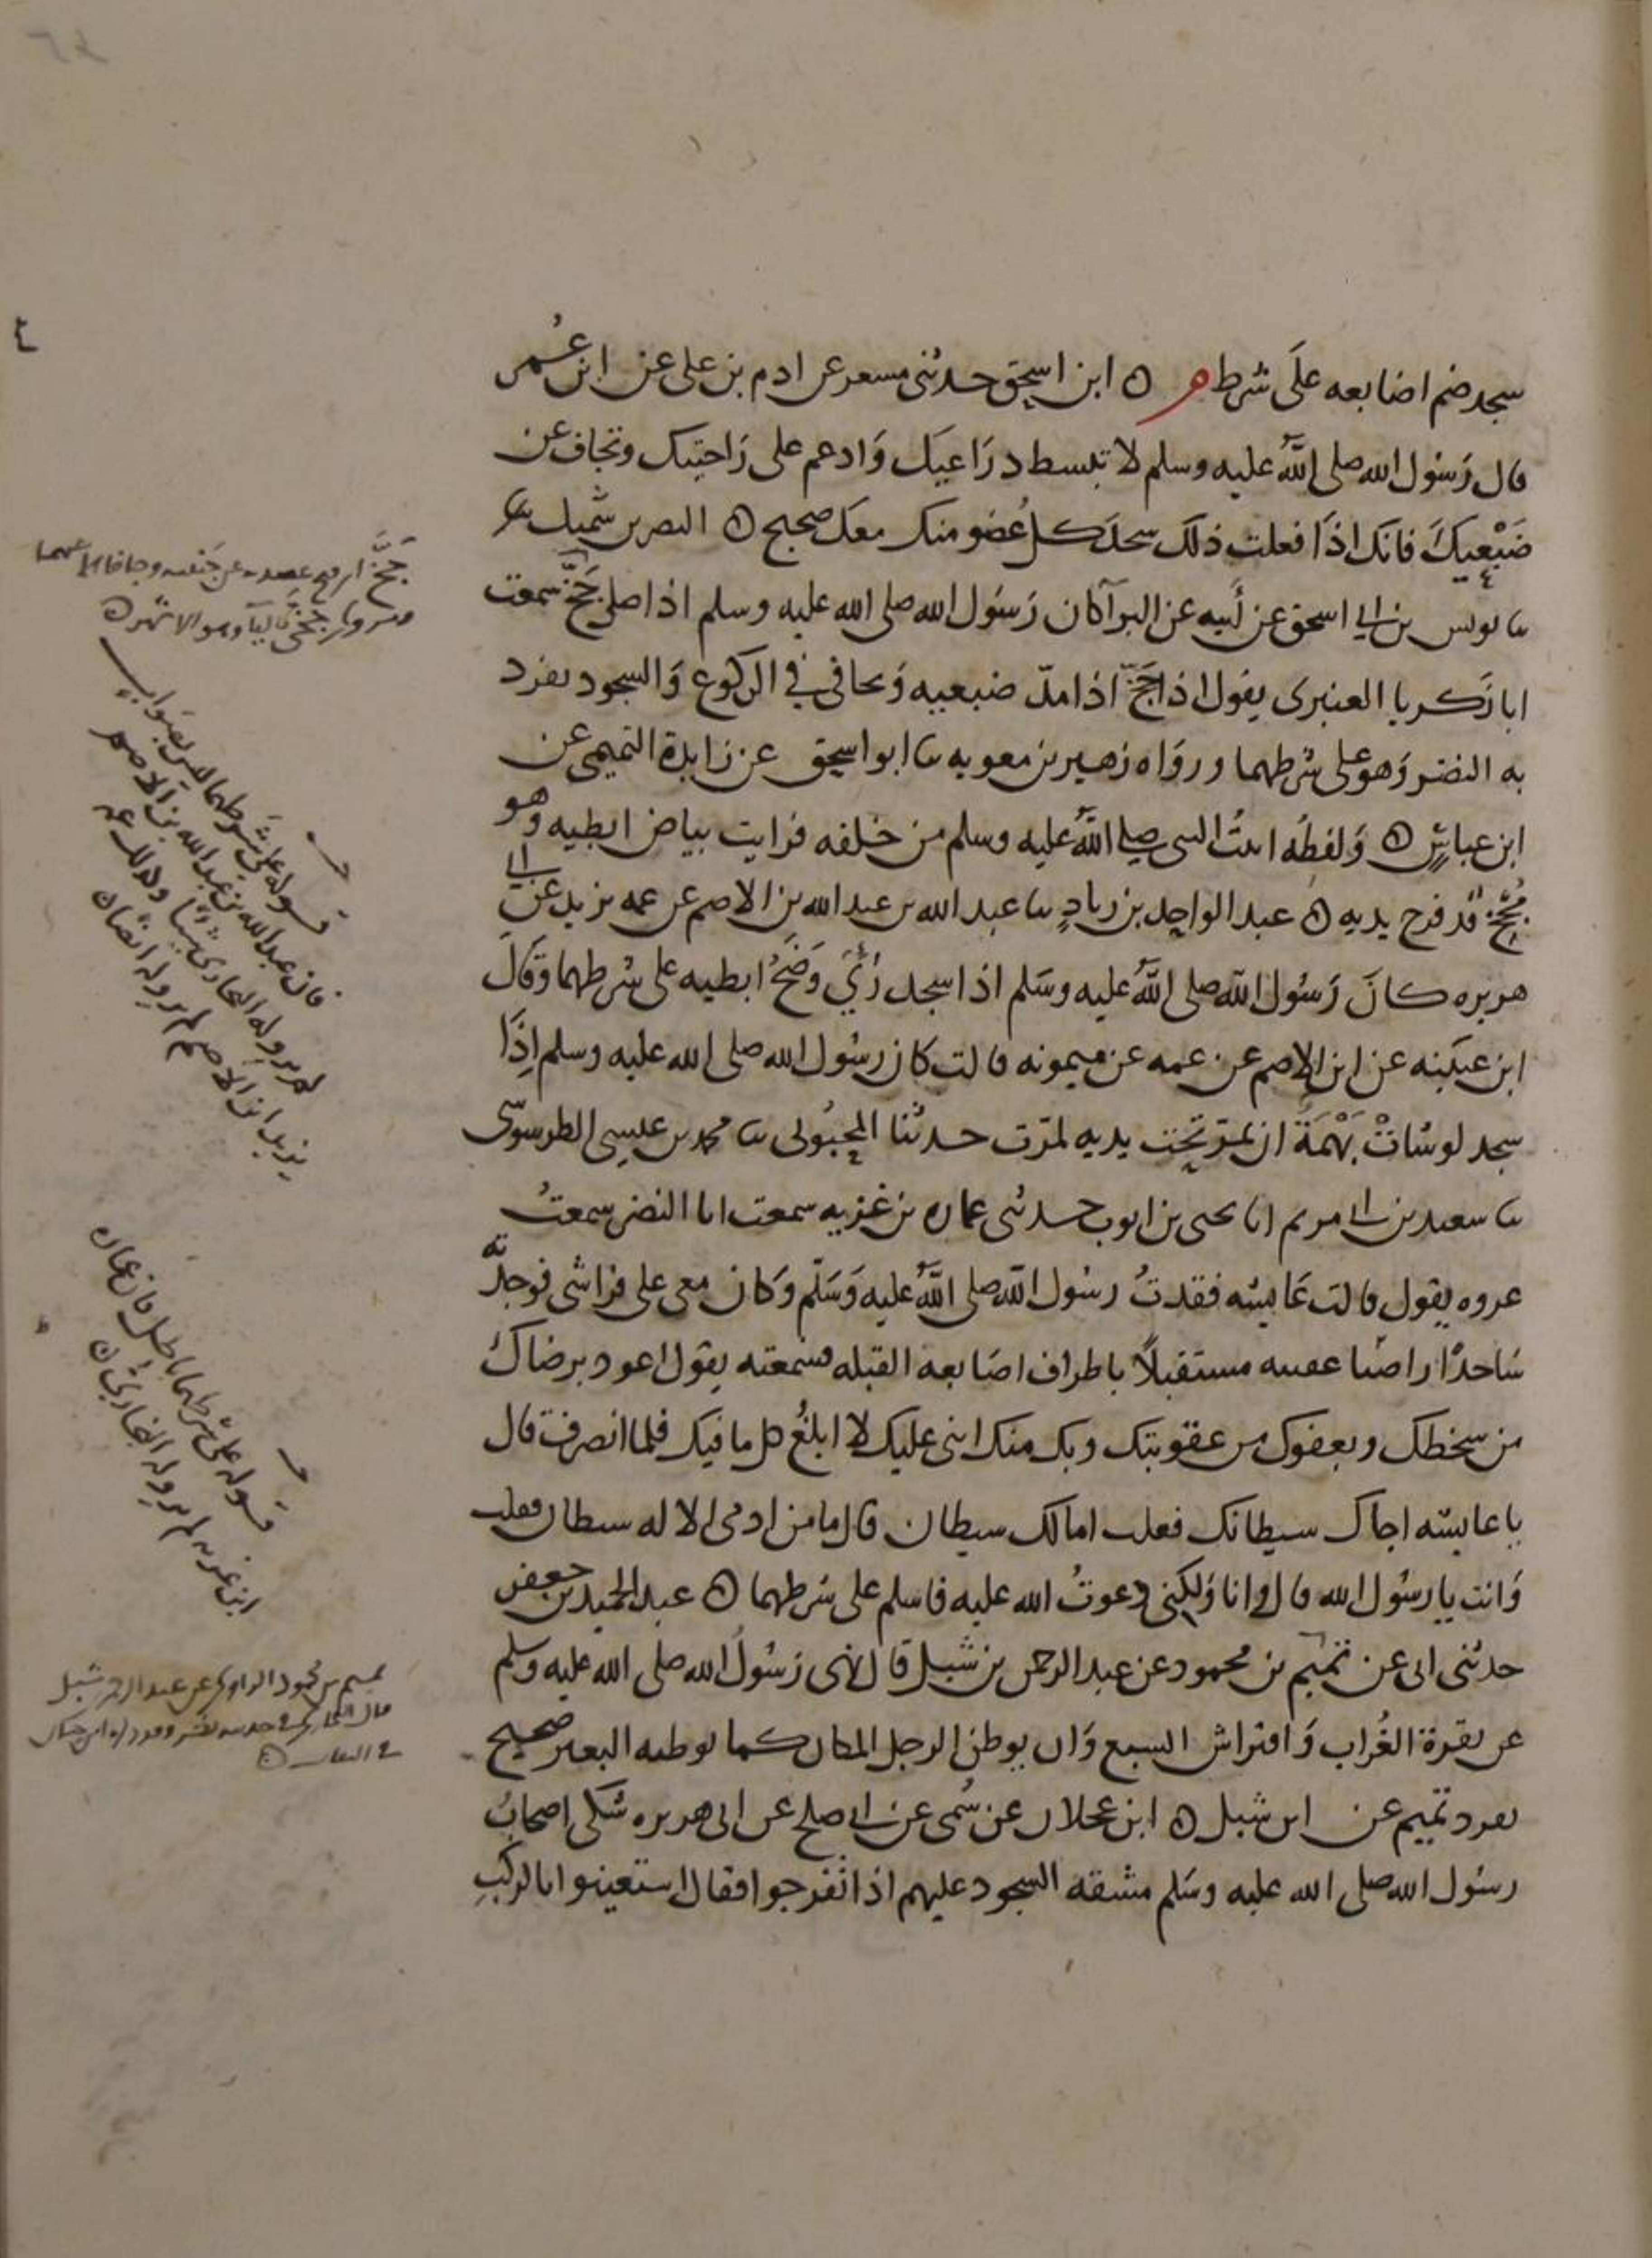 سجد ضم اصابعه علَى شرط م ۞ ابن اسحق حدثنى مسعر عن ادم بن على عن ابن عُمر
قال رَسُول الله صلى اللهُ عليه وسلم لا تبسط ذرَاعيَك وَادعم على رَاحتيك وتجاف عن
ضَبْعيكَ فانكَ اذَا فعلت ذلكَ سجدَ كل عُضو منك معكَ صحيح ۞ النضر بن شميل
ثنا يونس بن ابي اسحق عن أبيه عن البرآ كان رَسُول الله صلى الله عليه وسلم اذا صلى جَخَّ سمعت
ابا زكريا العنبرى يقول اذا جَخَّ اذا مدّ ضبعيه وَيجافى في الركوع وَالسجود تفرد
به النضر وَهو على شرطهما ورَوَاه زهير بن معويه ثنا ابو اسحق عن زايدة التميمى عن
ابن عباسٍ ۞ وَلفظُه اتيتُ النبى صلى اللهُ عليه وسلم من خلفه فرايت بياض ابطيه وَهو
مُجَخٍّ قد فرج يديه ۞ عبد الواحد بن زيادٍ ثنا عبد الله بن عبد الله بن الاصم عن عمه يزيد عن ابي
هريره كانَ رَسُول الله صلى اللهُ عليه وسَلم اذا سجد رُئيَ وَضَحُ ابطيه على شرطهما وَقَالَ
ابن عيينه عن ابن الاصم عن عمه عن ميمونه قالت كان رسُول الله صلى الله عليه وسلم إذَا
سجد لو شاتْ بَهْمَة ان تمرّ تحت يديه لمرّت حدثنا المحبُوبى ثنا محمد بن عيسى الطرسوسى
ثنا سعيد بن ابي مريم انا يحيى بن ايوب حدثنى عماره بن غزيه سمعت ابا النضر سمعتُ
عروه يقول قالت عَايشه فقدتُ رسُول الله صلى اللهُ عليه وَسَلّم وَكان معى على فراشى فوجدته
سَاجدًا راصّا عقبيه مستقبلاً باطراف اصَابعه القبله فسمعته يقول اعوذ برضاكَ
من سخطك وبعفوك من عقوبتك وبك منك اثنى عليك لا ابلغُ كل ما فيك فلما انصرف قال
يا عايشه اجاك شيطانك فقلت اما لك شيطان قال ما من ادمى الا له شيطان فقلت
وَانت يا رسُول الله قال وانا وَلكنى دعوتُ الله عليه فاسلم على شرطهما ۞ عبد الحميد بن جعفر
حدثنى ابى عن تميم بن محمود عن عبد الرحمن بن شبل قال نهى رَسُولُ الله صلى الله عليه وسلم
عن نقرة الغُراب وَافتراش السبع وَان يوطن الرجل المكان كما يوطنه البعير صحيح
تفرد تميم عن ابن شبل ۞ ابن عجلان عن سُمى عن ابي صلح عن ابى هريره شكى اصحابُ
رسُول الله صلى الله عليه وسَلم مشقه السجود عليهم اذا تفرجوا فقال استعينوا بالركَبِ
جَخَّ اى رفع عضديه عن جَنبيه وجافاهما عنهما
ويروى جَخَّى باليآ وهو الاشهر ۞
قوله على شرطهما ليس بصواب
فان عبد الله بن عبد الله بن الاصم
لم يرو له البخارى شيئا وكذلك عمه
يزيد ابن الاصم لم يرو له ايضا ۞
قوله على شرطهما باطل فان عماره
ابن غزيه لم يرو له البخارى ۞
تميم بن محمود الراوى عن عبد الرحمن بن شبل
قال البخارى في حديثه نظر وقد ذكره ابن حبان
في الثقات ۞